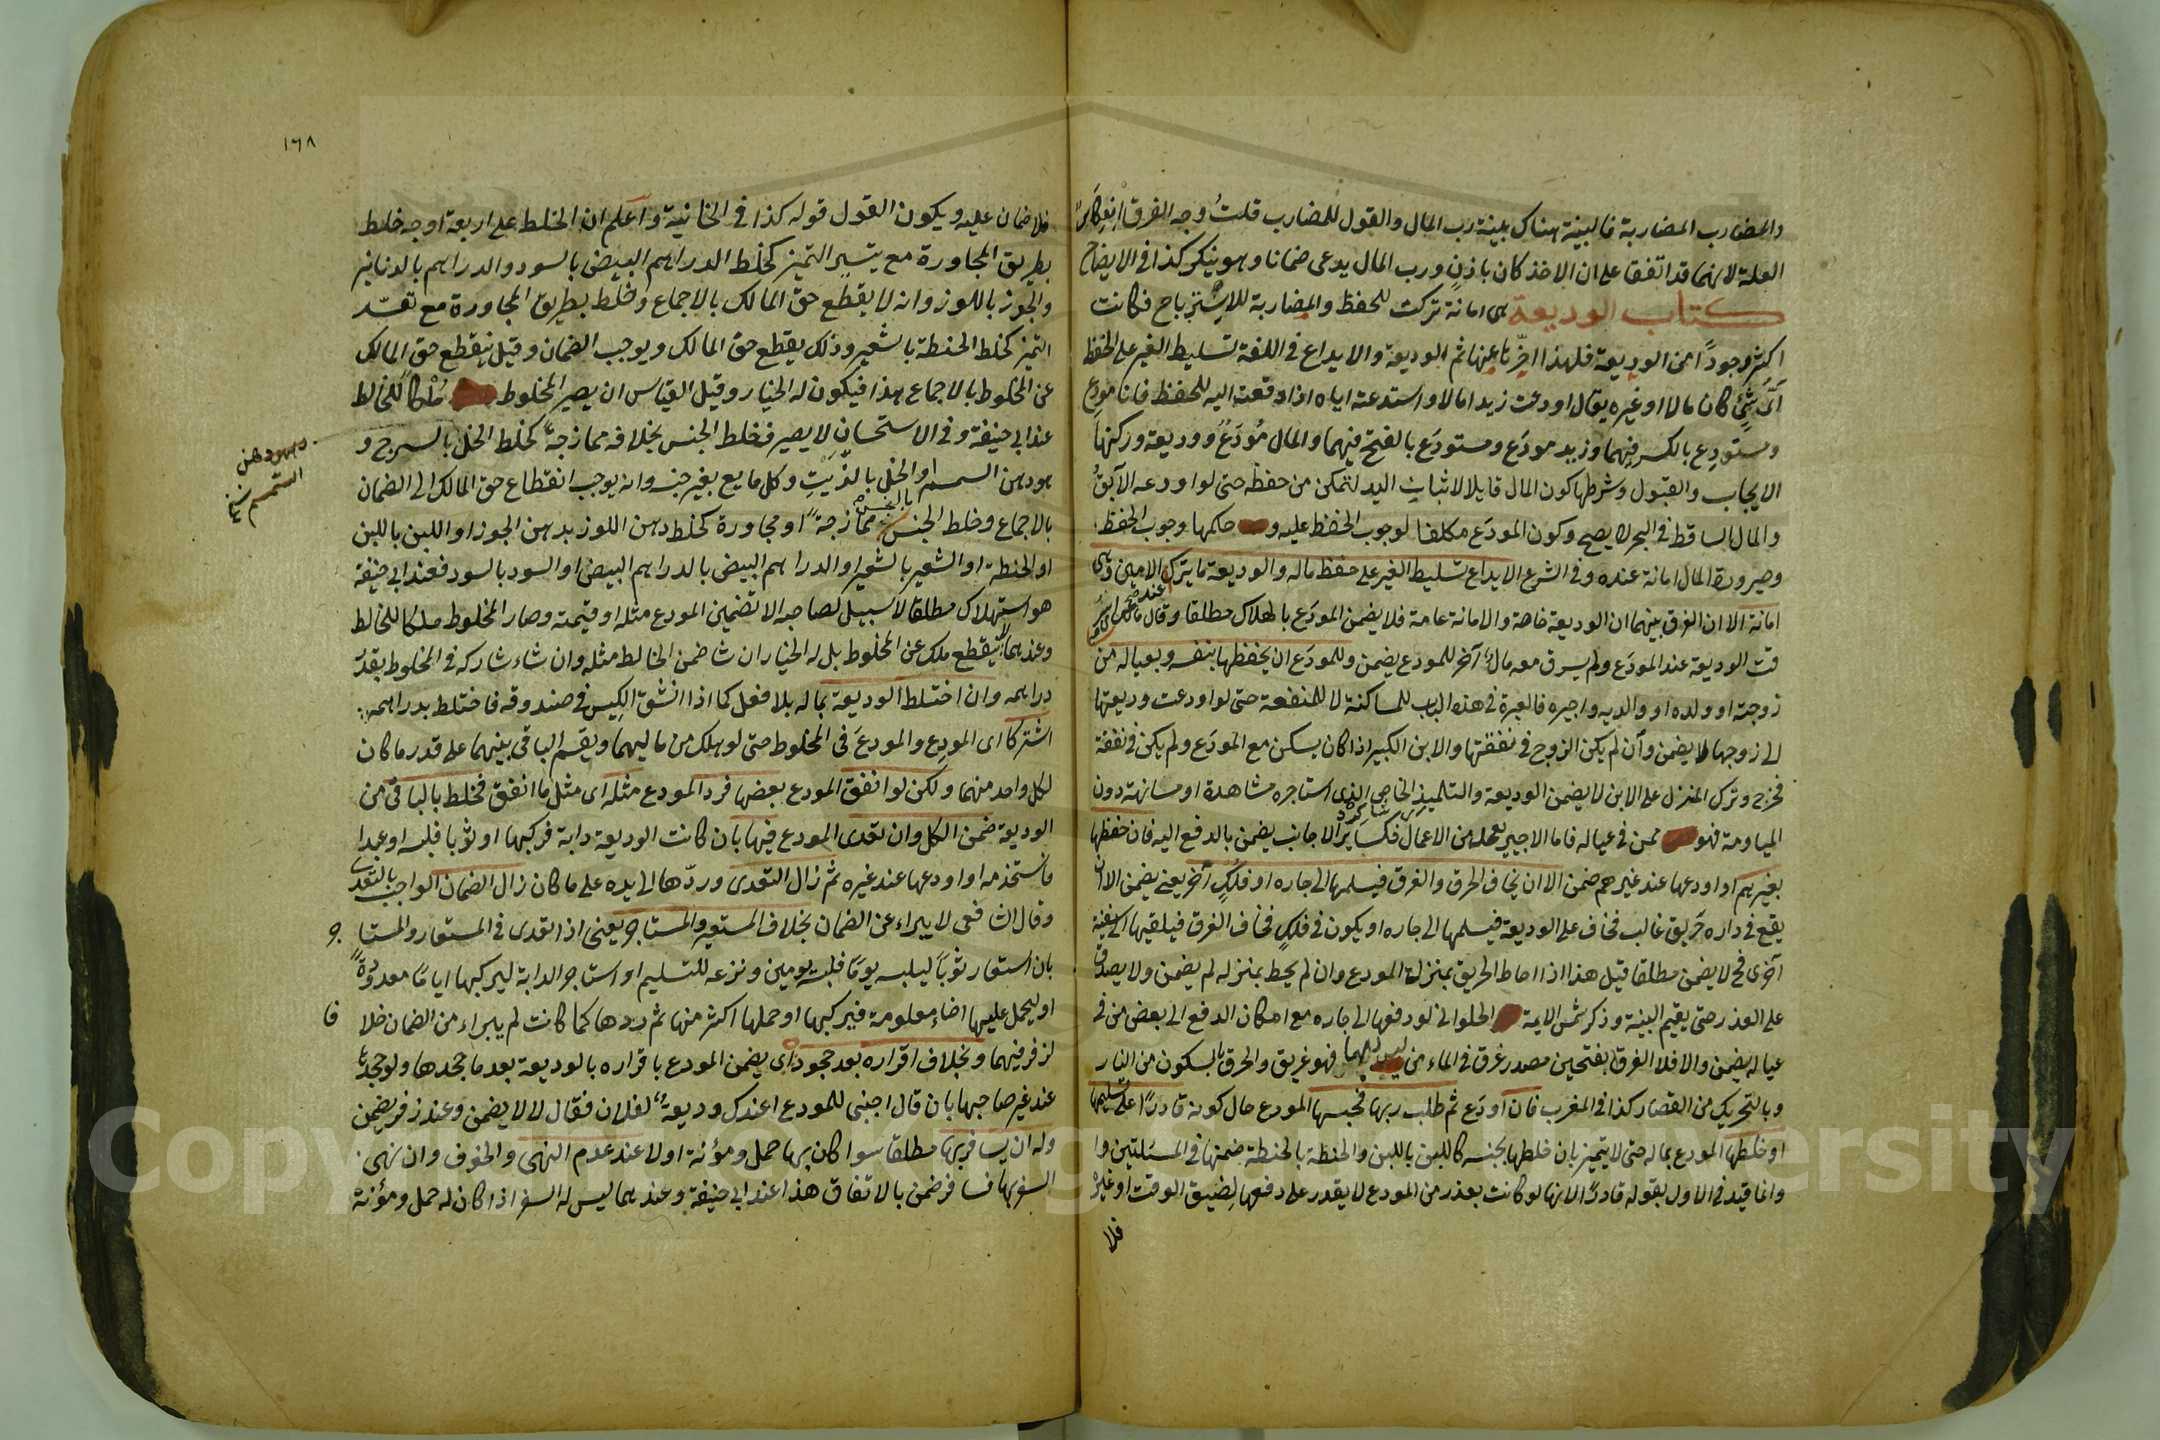 والمضارب المضاربة فالبينة هناك بينة رب المال والقول للمضارب قلت وجه الفرق انعكاس
العلة لانهما قد اتفقا على ان الاخذ كان باذن ورب المال يدعى ضمانا وهو ينكر كذا فى الايضاح
كتاب الوديعة هى امانة تركت للحفظ والمضاربة للاسترباح فكانت
اكثر وجودا من الوديعة فلهذا اخرناها عنها ثم الوديعة والايداع فى اللغة تسليط الغير على الحفظ
اى شئ كان مالا او غيره يقال اودعت زيدا مالا واستدعته اياه اذا دفعته اليه للحفظ فانا مودع
ومستودع بالكسر فيهما وزيد مودَع ومستودَع بالفتح فيهما والمال مُودَعٌ ووديعة وركنها
الايجاب والقبول وشرطها كون المال قابلا لاثبات اليد لتمكن من حفظه حتى لو اودعه الآبق
والمال الساقط فى البحر لا يصح وكون المودَع مكلفا لوجوب الحفظ عليه و حكمها وجوب الحفظ
وصيرورة المال امانة عنده وفى الشرع الايداع تسليط الغير على حفظ ماله والوديعة ما يترك عند الامين وهى
امانة الا ان الفرق بينهما ان الوديعة خاصة والامانة عامة فلا يضمن المودَع بالهلاك مطلقا وقال مالك ان سر
قت الوديعة عند المودَع ولم يسرق معه مال آخر للمودع يضمن وللمودَع ان يحفظها بنفسه وبعياله من
زوجته او ولده او والديه واجيره فالعبرة فى هذه الباب للمساكنة لا للمنفعة حتى لو اودعت وديعتها
الى زوجها لا يضمن وان لم يكن الزوج فى نفقتها والابن الكبير اذا كان يسكن مع المودَع ولم يكن فى نفقة
فخرج وترك المنزل على الابن لا يضمن الوديعة والتلميذ الخاص الذى استاجره مشاهدة او مسانهة دون
المياومة فهو ممن فى عياله فاما الاجير بعمل من الاعمال فكسائر الاجانب يضمن بالدفع اليه فان حفظها
بغيرهم او اودعها عند غيرهم ضمن الا ان يخاف الحرق والغرق فيسلمها الى جاره او فلك آخر يعنى يضمن الا ان
يقع فى داره حريق غالب فخاف على الوديعة فيسلمها الى جاره او يكون فى فلك فخاف الغرق فيلقيها الى سفينة
اخرى فح لا يضمن مطلقا قيل هذا اذا احاط الحريق بمنزلة المودع وان لم يحط بمنزله لم يضمن ولا يصدق
على العذر حتى يقيم البينة وذكر شمس الايمة الحلوانى لو دفعها الى جاره مع امكان الدفع الى بعض من فى
عياله يضمن والا فلا الغرق بفتحين مصدر غرق فى الماء من فهو غريق والحرق بالسكون من النار
وبالتحريك من القصار كذا فى المغرب فان اودَع ثم طلب ربها فحبسها المودع حال كونه قادرا على تسليمها
او خلطها المودع بماله حتى لا يتميز بان خلطها بجنسه كاللبن باللبن والحنطة بالحنطة ضمنها فى المسئلتين وا
وانما قيد فى الاول بقوله قادرا لانها لو كانت بعذر من المودع لا يقدر على دفعها لضيق الوقت او غيره
فلا
١٦٨
فلا ضمان عليه ويكون القول قوله كذا فى الخانية واعلم ان الخلط على اربعة اوجه خلط
بطريق المجاورة مع يتسير التميز كخلط الدراهم البيض بالسود والدراهم بالدنانير
والجوز باللوز وانه لا يقطع حق المالك بالاجماع وخلط بطريق المجاورة مع تعسر
التميز كخلط الحنطة بالشعير وذلك يقطع حق المالك ويوجب الضمان وقيل ينقطع حق المالك
عن المخلوط بالاجماع هذا فيكون له الخيار وقيل القياس ان يصير المخلوط ملكا للخالط
عند ابى حنيفة وفى الاستحسان لا يصير فخلط الجنس بخلافه ممازجة كخلط الخل بالسرج و
هو دهن السمسم او الخل بالزيت وكل مايع بغير جنسه وانه يوجب انقطاع حق المالك الى الضمان
وهو دهن
السمسم
بالاجماع وخلط الجنس بالجنس ممازجة او مجاورة كخلط دهن اللوز بدهن الجوز او اللبن باللبن
او الحنطة او الشعير بالشعير او الدراهم البيض بالدراهم البيض او السود بالسود فعند ابى حنيفة
هو استهلاك مطلقا لا سبيل لصاحبه الا تضمين المودع مثله او قيمته وصار المخلوط ملكا للخالط
وعندهما لا ينقطع ملك عن المخلوط بل له الخيار ان شا ضمن الخالط مثله وان شاء شاركه فى المخلوط بقدر
دراهمه وان اختلط الوديعة بماله بلا فعل كما اذا انشق الكيس فى صندوقه فاختلط بدراهمه
اشتركا اى المودِع والمودَع فى المخلوط حتى لو هلك من ماليهما ويقسم الباقى بينهما على قدر ما كان
لكل واحد منهما ولكن لو انفق المودع بعضها فرد المودع مثله اى مثل ما انفق فخلط بالباقى من
الوديعة ضمن الكل وان تعدى المودع فيها بان كانت الوديعة دابة فركبها او ثوبا فلبسه او عبدا
فاستخدمه او اودعها عند غيره ثم زال التعدى وردها الى يده على ما كان زال الضمان الواجب بالتعدى
وقال الشافعى لا يبراء عن الضمان بخلاف المستعير والمستاجر يعنى اذا تعدى فى المستعار والمستا
جر
بان استعار ثوبا ليلبسه يوما فلبسه يومين ونزعه للتسليم او استاجر الدابة ليركبها اياما معدودة
او ليحمل عليها معلومة فيركبها او حملها اكثر منها ثم ردها كما كانت لم يبراء من الضمان خلا
فا
لزفر فيهما وبخلاف اقراره بعد جحوده اى يضمن المودع باقراره بالوديعة بعد ما جحدها ولو جحدها
عند غير صاحبها بان قال اجنبى للمودع اعندك وديعة لفلان فقال لا لا يضمن وعند زفر يضمن
وله ان يسافر بها مطلقا سوا كان بها حمل ومؤنة اولا عند عدم النهى والخوف وان نهى
السفر بها فسافر ضمن بالاتفاق هذا عند ابى حنيفة وعندهما ليس له السفر اذا كان له حمل ومؤنة
Copyright © King Saud University